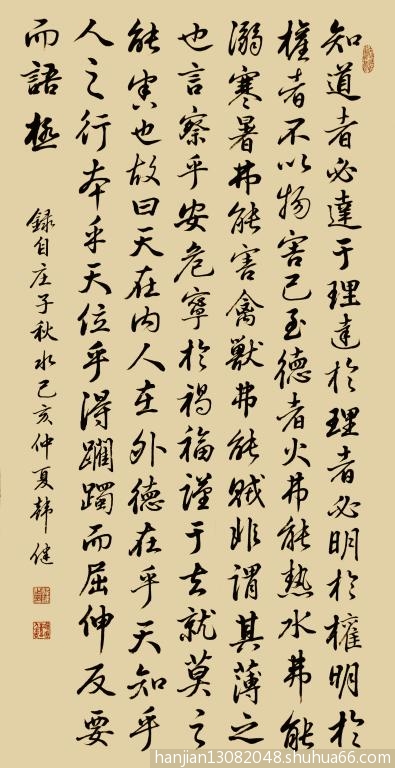 知道者必達于理達於理者必明於權明於
權者不以物害己至德者火弗能熱水弗能
溺寒暑弗能害禽獸弗能賊非謂其薄之
也言察乎安危寧於禍福謹于去就莫之
能害也故曰天在内人在外德在乎天知乎
人之行本乎天位乎得躑躅而屈伸反要
而語極
錄自庄子秋水己亥仲夏韓健
hanjian13082048.shuhua66.com